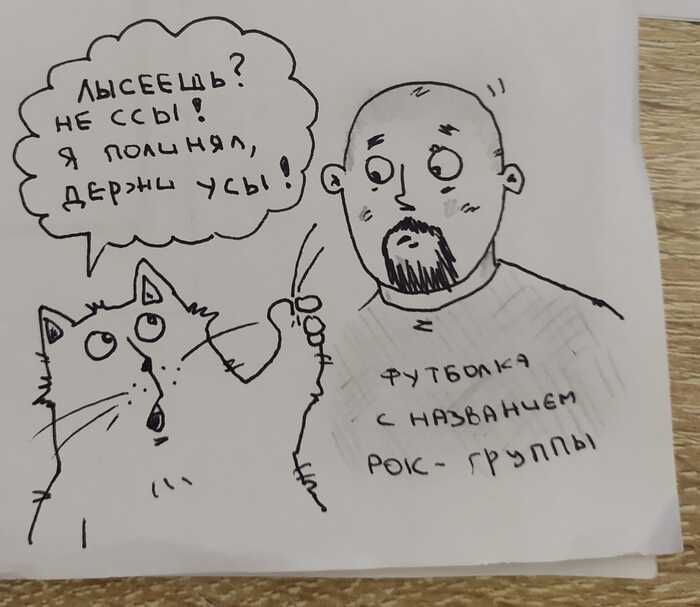 ЛЫСЕЕЩЬ?
НЕ ССЫ!
Я ПОЛИНЯЛ,
ДЕРЖИ УСЫ!
ФУТБОЛКА
С НАЗВАНИЕМ
РОК-ГРУППЫ